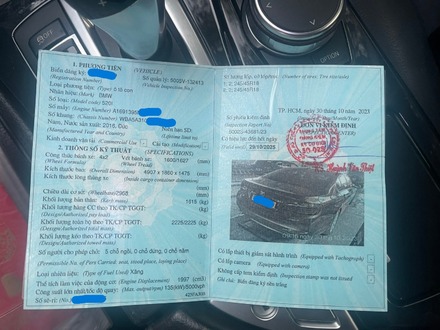 1. PHƯƠNG TIỆN (VEHICLE)
Biển đăng ký:
(Registration Number)
Số quản lý: 5002V-132413
(Vehicle Inspection No.)
Loại phương tiện: (Type) ô tô con
Nhãn hiệu: (Mark) BMW
Số loại: (Model code) 520I
Số máy: (Engine Number)
Số khung: (Chassis Number)
Năm, Nước sản xuất: 2016, Đức
(Manufactured Year and Country)
Kinh doanh vận tải (Commercial Use)
Cải tạo (Modification)
2. THÔNG SỐ KỸ THUẬT (SPECIFICATIONS)
Công thức bánh xe: 4x2
(Wheel Formula)
Vết bánh xe: 1600/1627 (mm)
(Wheel Tread)
Kích thước bao: (Overall Dimension) 4907 x 1860 x 1475 (mm)
Kích thước lòng thùng xe: (Inside cargo container dimension) (mm)
Chiều dài cơ sở: (Wheelbase) 2968 (mm)
Khối lượng bản thân: (Kerb mass) (kg)
Khối lượng hàng CC theo TK/CP TGGT: (kg)
(Design/Authorized pay load)
Khối lượng toàn bộ theo TK/CP TGGT: 2225/2225 (kg)
(Design/Authorized total mass)
Khối lượng kéo theo TK/CP TGGT: (kg)
(Design/Authorized towed mass)
Số người cho phép chở: 5 chỗ ngồi, 0 chỗ đứng, 0 chỗ nằm
(Permissible No. of Pers Carried: seat, stood place, laying place)
Loại nhiên liệu: (Type of Fuel Used) Xăng
Thể tích làm việc của động cơ: (Engine Displacement) 1997 (cm3)
Công suất lớn nhất/tốc độ quay: (Max. output/rpm) 135kW/5000vph
Số sê-ri: (No.)
(Number of tires; Tire size/axle)
1: 2; 245/45R18
2: 2; 245/45R18
Số phiếu kiểm định
(Inspection Report No)
5002D-43681/23
Có hiệu lực đến hết ngày
(Valid until)
29/10/2025
TP. HCM, ngày 30 tháng 10 năm 2023
ĐƠN VỊ KIỂM ĐỊNH
Có lắp thiết bị giám sát hành trình (Equipped with Tachograph)
Có lắp camera (Equipped with camera)
Không cấp tem kiểm định (Inspection stamp was not issued)
Ghi chú: Biển đăng ký nền trắng